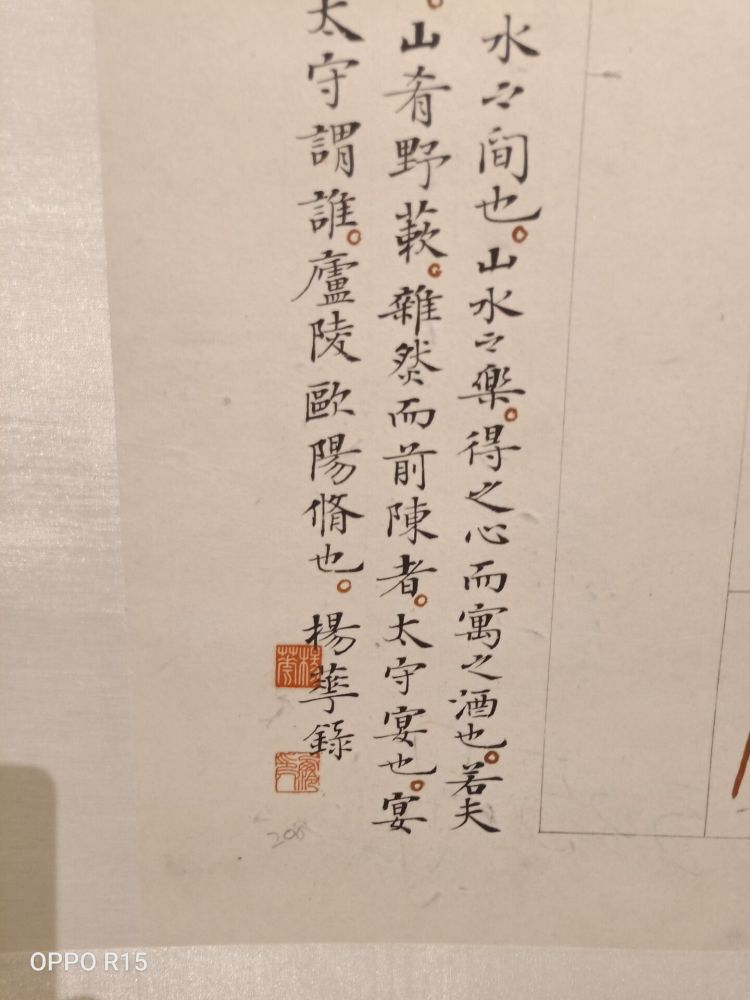 水々間也。山水之樂。得之心而寓之酒也。若夫
。山肴野蔌。雜然而前陳者。太守宴也。宴
太守謂誰。廬陵歐陽脩也。楊華錄
208
OPPO R15